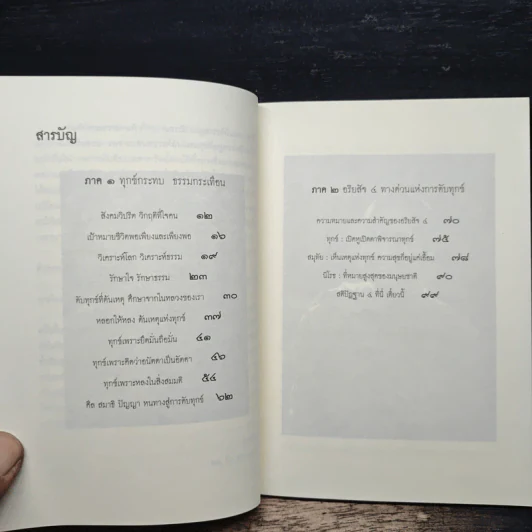 สารบัญ
ภาค ๑ ทุกข์กระทบ ธรรมกระเทือน
สังคมวิปริต วิกฤติที่ใจคน ๑๒
เป้าหมายชีวิตพอเพียงและเพียงพอ ๑๖
วิเคราะห์โลก วิเคราะห์ธรรม ๑๙
รักษาใจ รักษาธรรม ๒๓
ดับทุกข์ที่ต้นเหตุ ศึกษาจากในหลวงของเรา ๓๐
หลอกให้หลง ต้นเหตุแห่งทุกข์ ๓๗
ทุกข์เพราะยึดมั่นถือมั่น ๔๑
ทุกข์เพราะคิดว่าอนัตตาเป็นอัตตา ๔๖
ทุกข์เพราะหลงในสิ่งสมมติ ๕๔
ศีล สมาธิ ปัญญา หนทางสู่การดับทุกข์ ๖๒
ภาค ๒ อริยสัจ ๔ ทางด่วนแห่งการดับทุกข์
ความหมายและความสำคัญของอริยสัจ ๔ ๗๐
ทุกข์ : เปิดหูเปิดตาพิจารณาทุกข์ ๗๕
สมุทัย : เห็นเหตุแห่งทุกข์ ความสุขก็อยู่แค่เอื้อม ๗๘
นิโรธ : ที่หมายสูงสุดของมนุษยชาติ ๙๐
สติปัฏฐาน ๔ ที่นี่ เดี๋ยวนี้ ๙๙